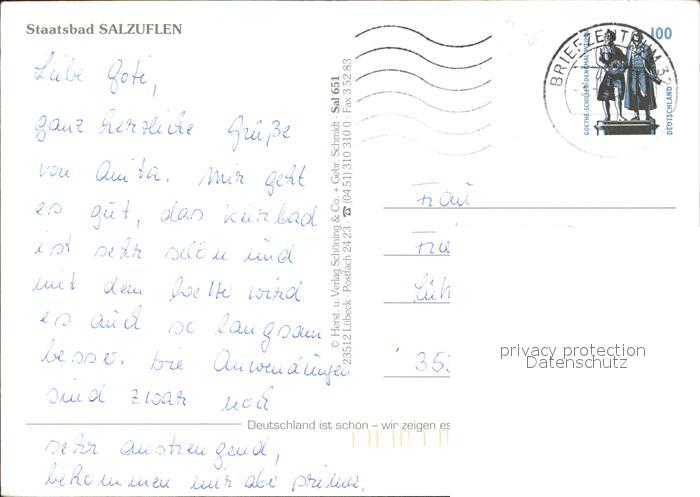 Staatsbad SALZUFLEN
Liebe Goti,
ganz herzliche Grüße
von Anita. Mir geht
es gut, das Kurbad
ist sehr schön und
mit dem Wetter wird
es auch so langsam
besser. Die Anwendungen
sind zwar noch
sehr anstrengend,
bekommen mir aber prima.
© Herst. u. Verlag Schöning & Co. + Gebr. Schmidt · Sal 651
23512 Lübeck · Postfach 24 23 · ☎ (04 51) 310 310 0 · Fax 3 52 83
Deutschland ist schön – wir zeigen es
BRIEFZENTRUM 32
100
GOETHE-SCHILLER-DENKMAL
DEUTSCHLAND
Frau
353
privacy protection
Datenschutz